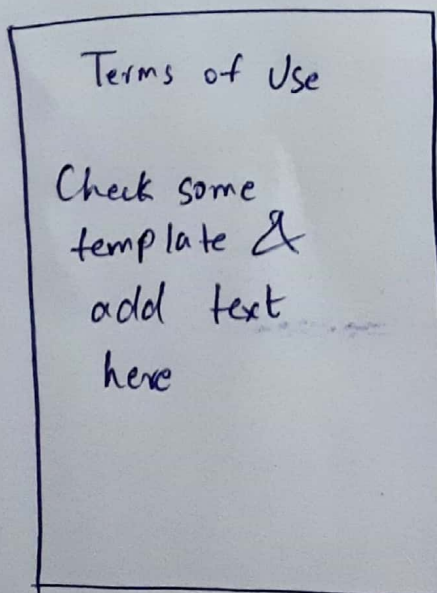 Terms of Use
Check some
template &
add text
here